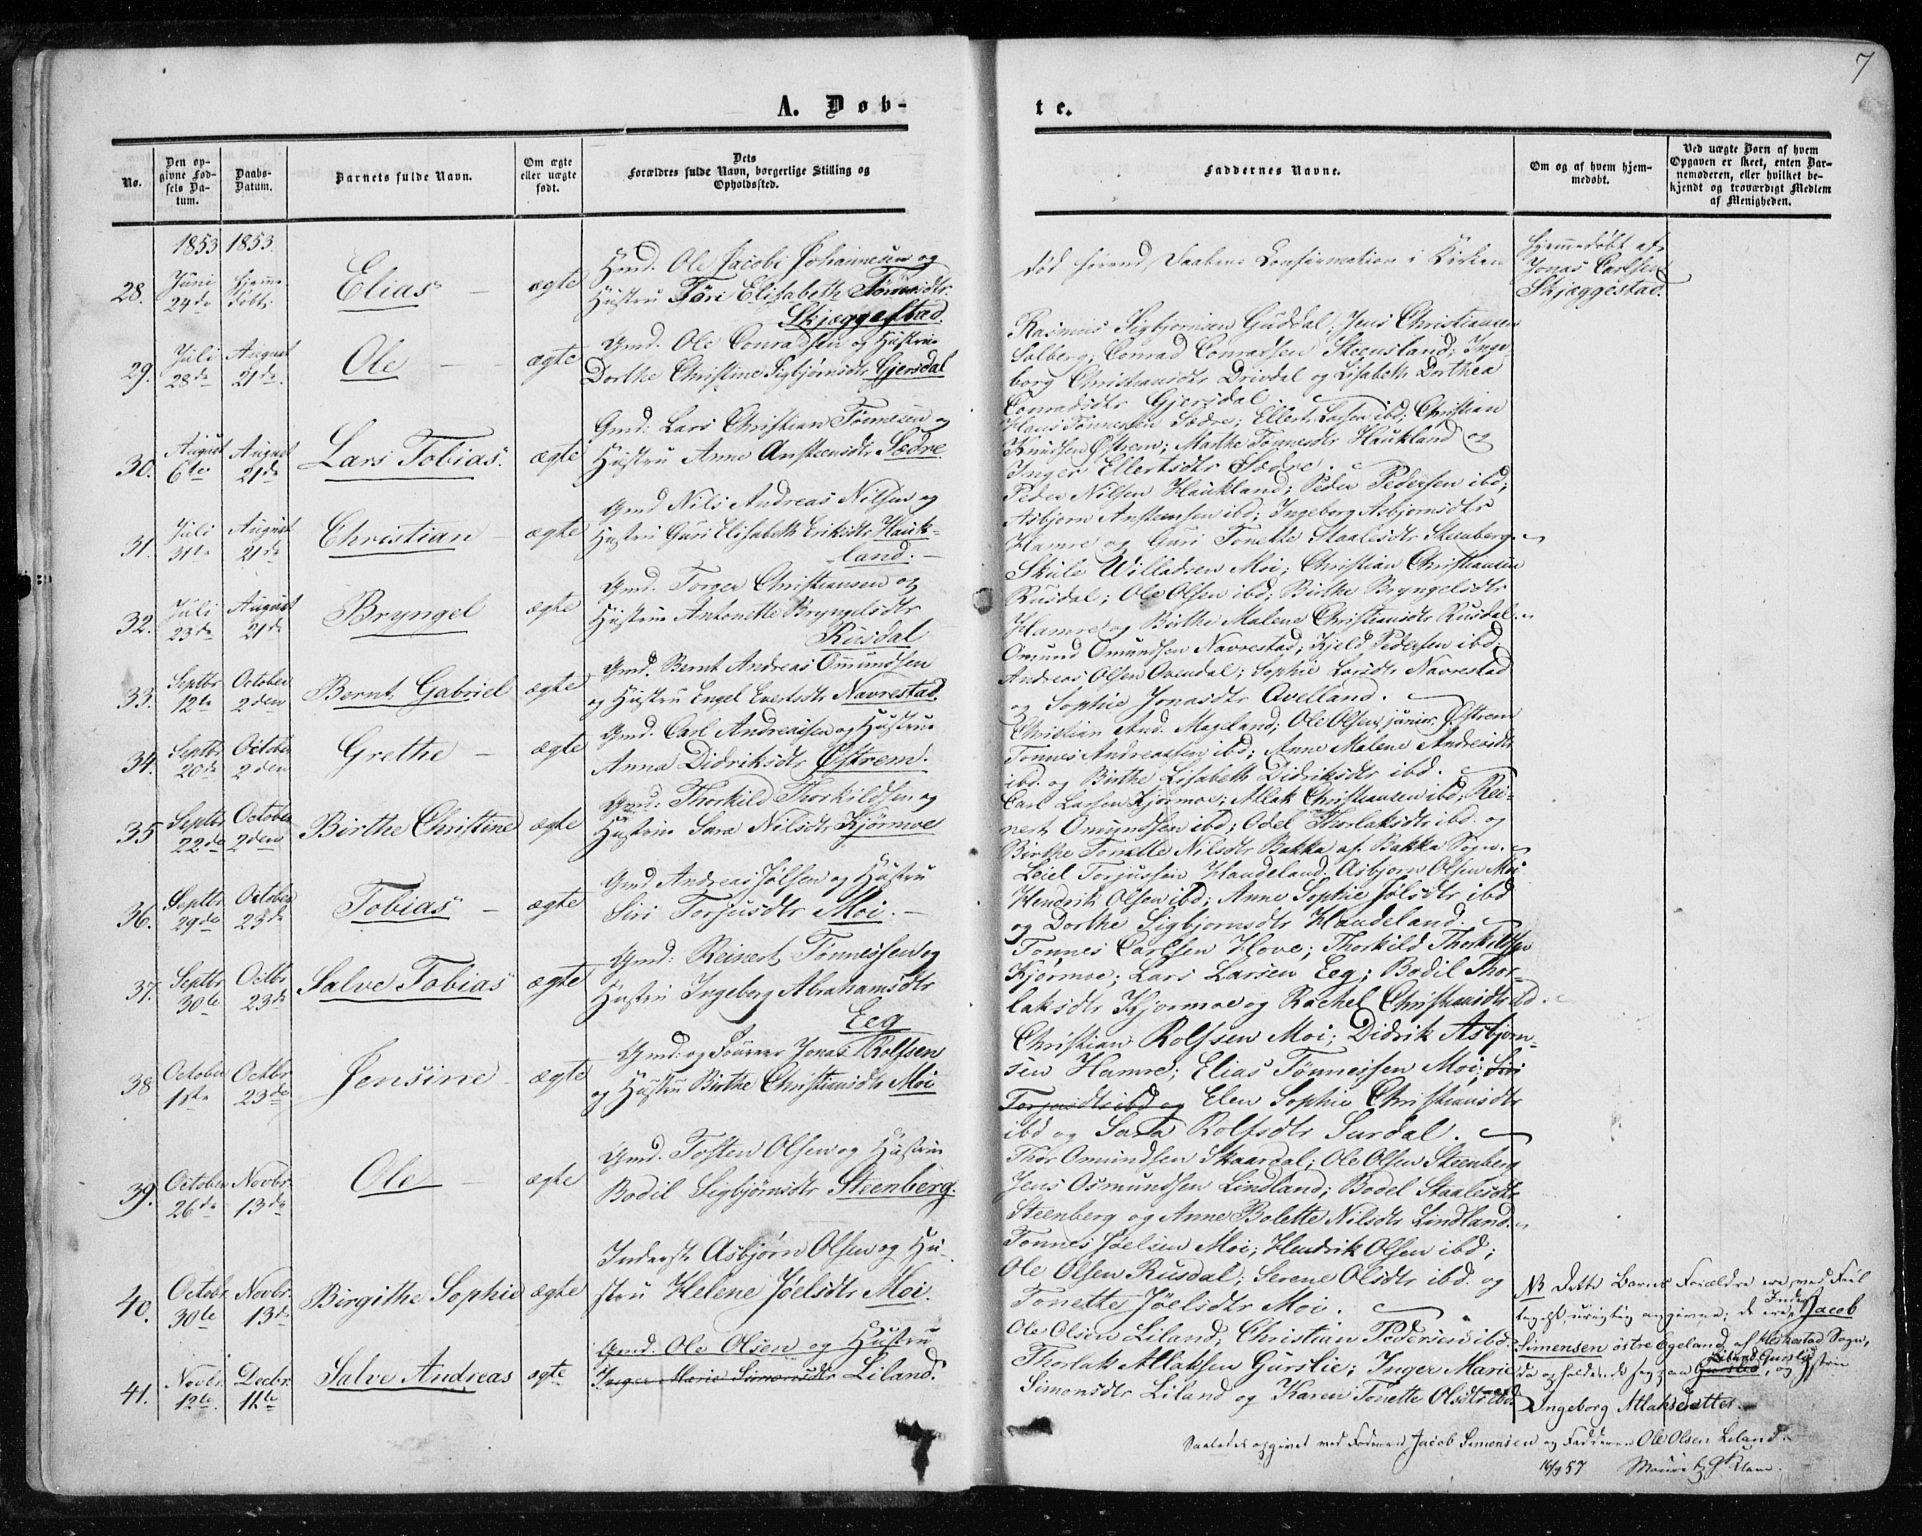 7
A. Døb-
te.
No.
Den op-
givne Fød-
sels Da-
tum.
Daabs-
Datum.
Barnets fulde Navn.
Om ægte
eller uægte
født.
Dets
Forældres fulde Navn, borgerlige Stilling og
Opholdssted.
Faddernes Navne.
Om og af hvem hjem-
medøbt.
Ved uægte Børn af hvem
Opgaven er skeet, enten Bar-
nemoderen, eller hvilket be-
kjendt og troværdigt Medlem
af Menigheden.
1853 1853.
28. Juni 24de
Hjemme døbt
Elias
ægte
Gmd. Ole Jacobi Johannesen og
Hustru Tøri Elisabeth Tønnesdtr
Skjæggestad.
død førend Daabens Confirmation i Kirken
Hjemmedøbt af
Jonas Carlsen
Skjæggestad.
29. Juli 28de
August 21de
Ole
ægte
Gmd. Ole Conradsen og Hustru
Dorthe Christine Sigbjørnsdtr Gjersdal
Rasmus Sigbjørnsen Guddal; Jens Christiansen
Solberg; Conrad Conradsen Steensland; Inge-
borg Christiansdtr Drivdal og Lisabeth Dorthea
Conradsdtr Gjersdal
30. August 6te
August 21de
Lars Tobias.
ægte
Gmd: Lars Christian Tønnesen og
Hustru Anne Ansteensdtr Sædre.
Hans Tønnesen Sædre; Ellert Larsen ibd; Christian
Knudsen Østrem; Marthe Tønnesdtr Haukland og
Inger Ellertsdtr Sædre.
31. Juli 31te
August 21de
Christian
ægte
Gmd Nils Andreas Nilsen og
Hustru Guri Elisabeth Eriksdtr Hauk-
land.
Peder Nilsen Haukland; Peder Pedersen ibd;
Asbjørn Anstensen ibd; Ingeborg Asbjornsdtr
Hamre og Guri Tonette Staalesdtr Steenberg.
32. Juli 23de
August 21de
Bryngel
ægte
Gmd. Torger Christiansen og
Hustru Antonette Bryngelsdtr
Rusdal
Skule Willadsen Moi; Christian Christiansen
Rusdal; Ole Olsen ibd; Birthe Bryngelsdtr
Hamre og Birthe Malene Christiansdtr Rusdal.
33. Septbr 12te
October 2den
Bernt Gabriel
ægte
Gmd. Bernt Andreas Omundsen
og Hustru Engel Evertsdtr Navrestad.
Omund Omundsen Navrestad; Kjeld Pedersen ibd
Andreas Olsen Ovendal; Sophie Larsdtr Navrestad
og Sophie Jonasdtr Avelland.
34. Septbr 20de
October 2den
Grethe
ægte
Gmd. Carl Andreassen og Hustru
Anna Didriksdtr Østrem.
Christian And. Mageland; Ole Olsen junior Østrem
Tønnes Andreassen ibd; Anne Malene Andreasdtr
ibd. og Birthe Lisabeth Didriksdtr ibd.
35 Septbr 22de
October 2den
Birthe Christine
ægte
Gmd: Thorkild Thorkildsen og
Hustru Sara Nilsdtr Kjørmoe
Carl Larsen Kjørmoe; Atlak Christiansen ibd; Rei-
nert Omundsen ibd; Odel Thorlaksdtr ibd. og
Birthe Tonette Nilsdtr Bakka af Bakka Sogn.
36. Septbr 29de
October 23de
Tobias
ægte
Gmd. Andreas Jölsen og Hustru
Siri Torjusdtr Moi.
Leiel Torjussen Haudeland. Asbjørn Olsen Moi
Hendrik Olsen ibd; Anne Sophie Jölsdtr ibd
og Dorthe Sigbjornsdtr Haudeland.
37. Septbr 30te
Octbr. 23de
Salve Tobias
ægte
Gmd: Reinert Tønnessen og
Hustru Ingeberg Abrahamsdtr
Eeg
Tønnes Carlsen Hove; Thorkild Thorkildsen
Kjørmoe; Lars Larsen Eeg; Bodil Thor-
laksdtr Kjørmoe og Rachel Christiansdtr ibd.
38 October 1ste
Octbr. 23de
Jensine
ægte
Gmd: og Fourer Jonas Rolfsen
og Hustru Birthe Christiansdtr Moi
Christian Rolfsen Moi; Didrik Asbjørn-
sen Hamre; Elias Tönnessen Moi; Siri
Torjusdtr ibd og Elen Sophie Christiansdtr
ibd og Sara Rolfsdtr Surdal.
39. October 26de
Novbr. 13de
Ole
ægte
Gmd. Tosten Olsen og Hustru
Bodil Sigbjørnsdtr Steenberg.
Thor Omundsen Skaardal; Ole Olsen Steenberg
Jens Osmundsen Lindland; Bodel Staalesdtr
Steenberg og Anne Bolette Nilsdtr Lindland.
40. October 30te
Novbr. 13de
Birgithe Sophie
ægte
Inderste Asbjørn Olsen og Hu-
stru Helene Jøelsdtr Moi.
Tønnes Jøelsen Moi; Hendrik Olsen ibd;
Ole Olsen Rusdal; Serene Olsdtr ibd. og
Tonette Jøelsdtr Moi.
41. Novbr. 12te
Decbr. 11te
Salve Andreas
ægte
Gmd. Ole Olsen og Hustru
Inger Marie Simonsdtr Liland.
Ole Olsen Liland; Christian Pedersen ibd
Thorlak Atlaksen Gurslie; Inger Marie
Simonsdtr Liland og Karen Tonette Olsdtr ibd.
NB Dette Barns Forældre ere ved Feil
tagelse urigtig angivne; de ere Inderst Jacob
Simensen østre Egeland, af Heskestad Sogn,
da opholdende sig paa Gurslie, og Hustru
Ingeborg Atlaksdatter.
Saaledes opgivet med Faderen Jacob Simensen og Fadderen Ole Olsen Liland.
16/9 57